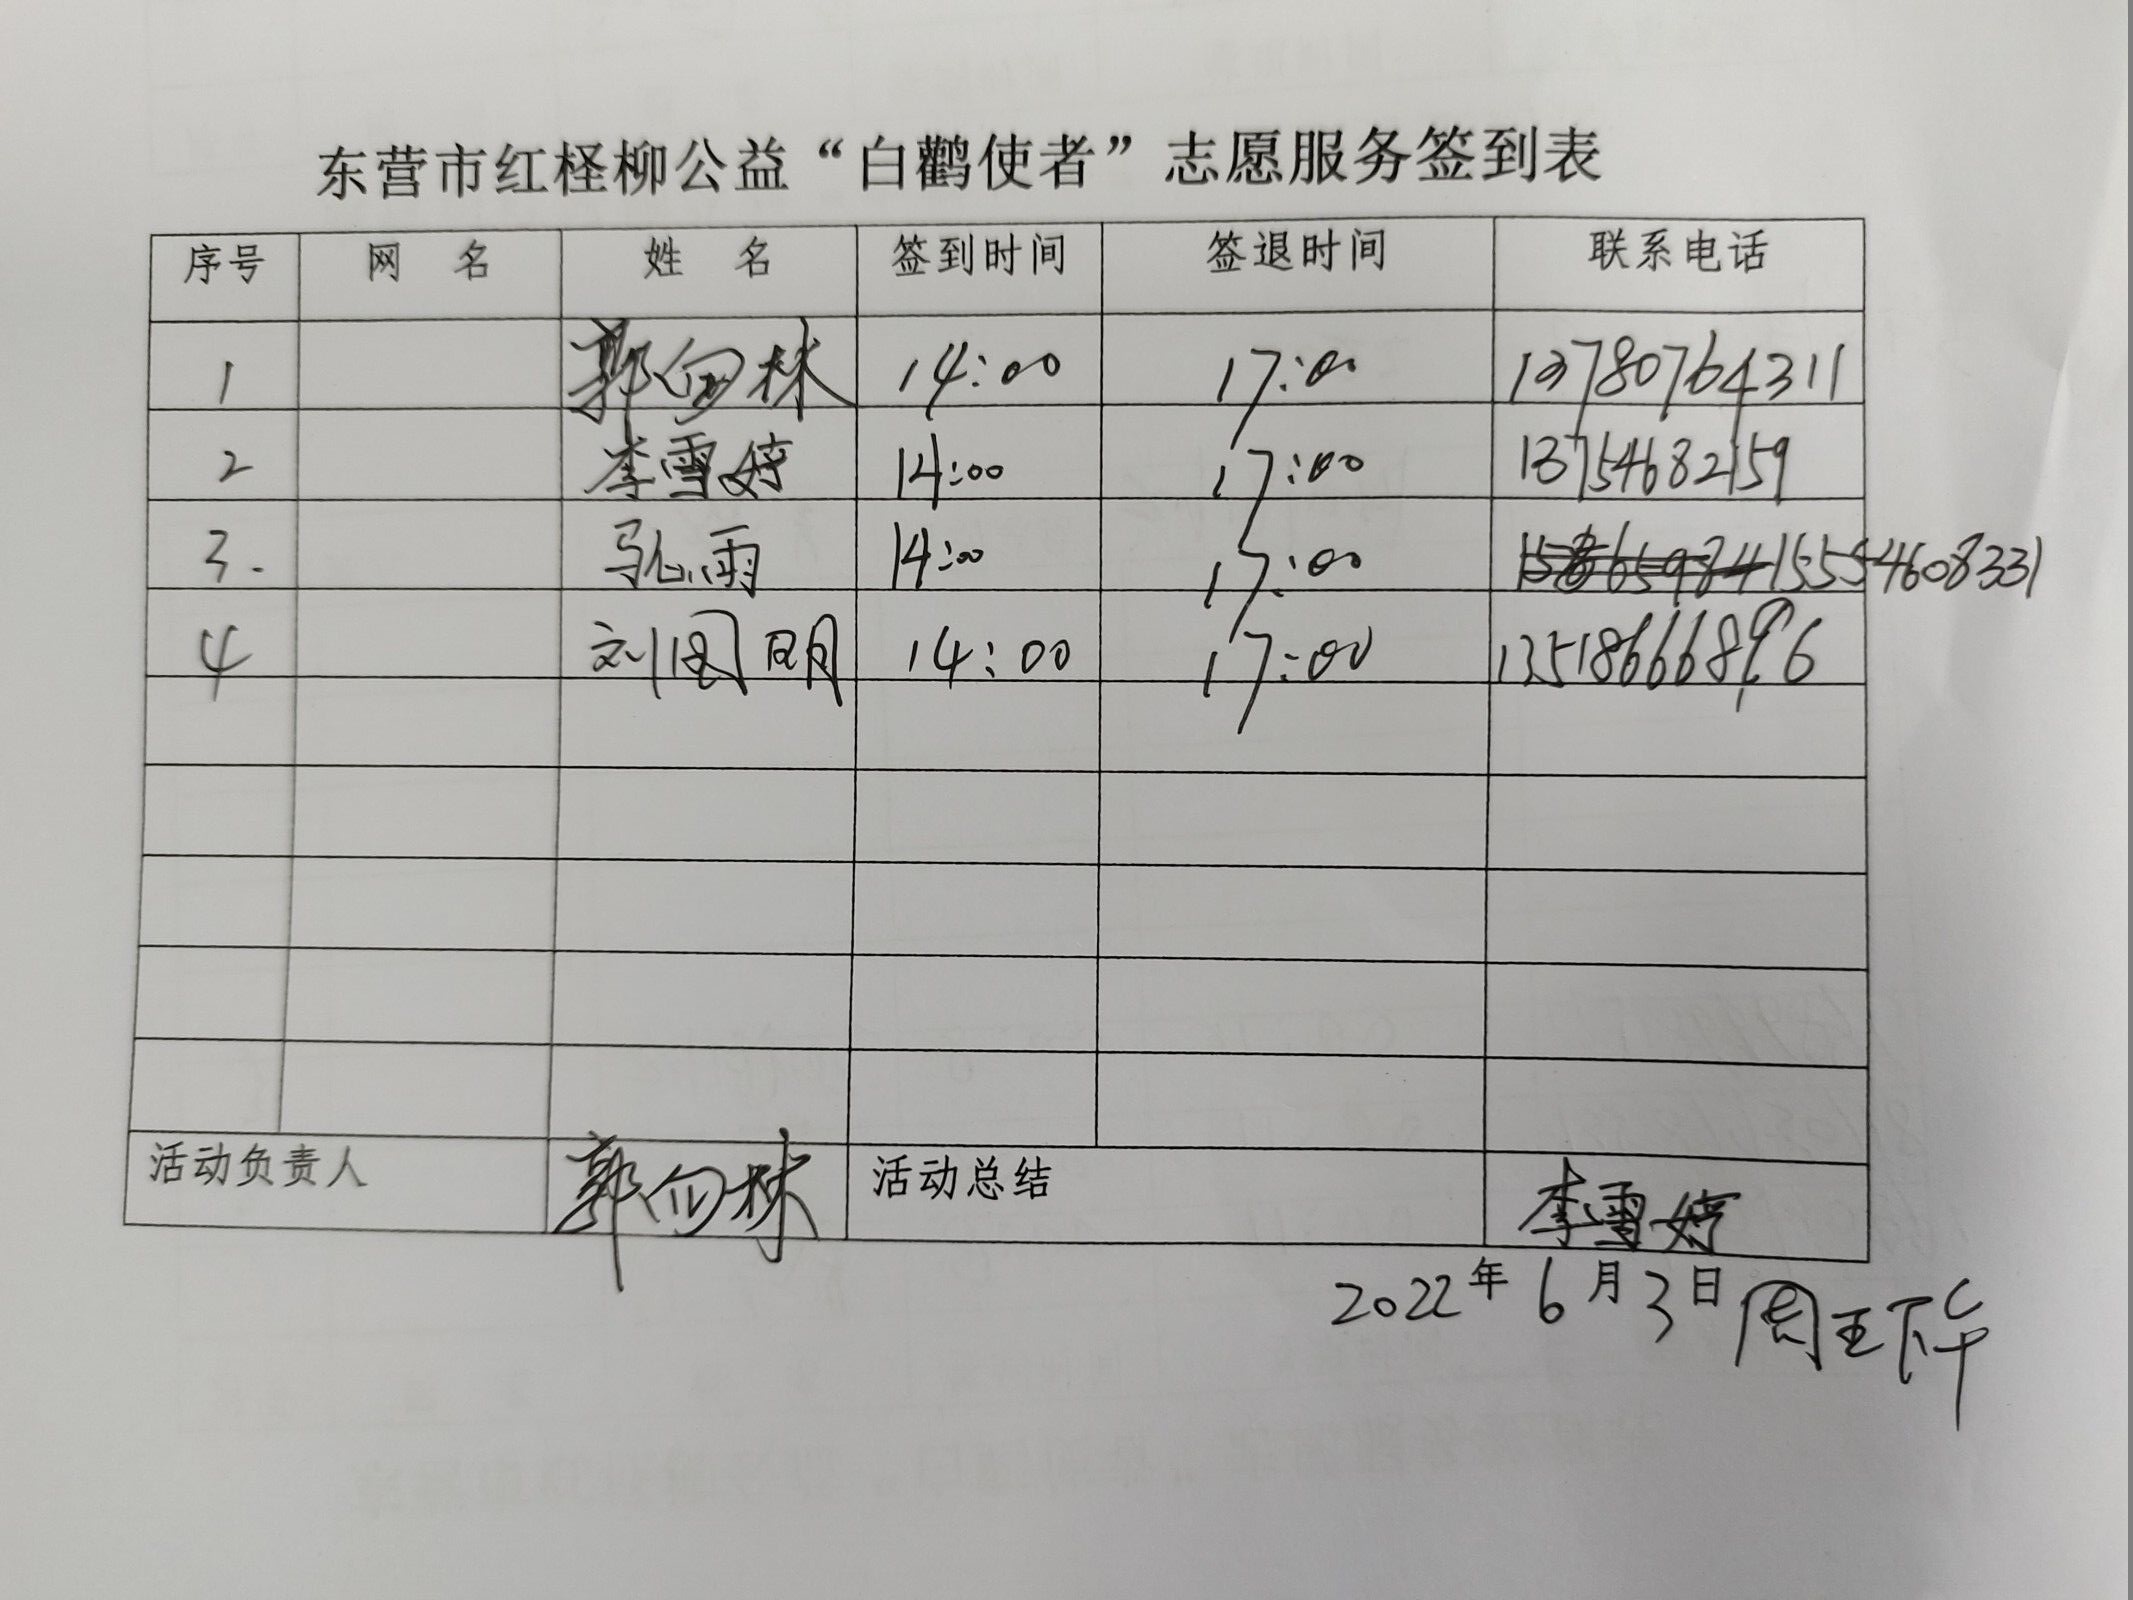 东营市红柽柳公益“白鹳使者”志愿服务签到表
序号 网 名 姓 名 签到时间 签退时间 联系电话
1 郭向林 14:00 17:00 13780764311
2 李雪婷 14:00 17:00 13754682159
3. 马心雨 14:00 17:00 15554608331
4 刘国明 14:00 17:00 13518666896
活动负责人 郭向林 活动总结 李雪婷
2022年6月3日 周五下午